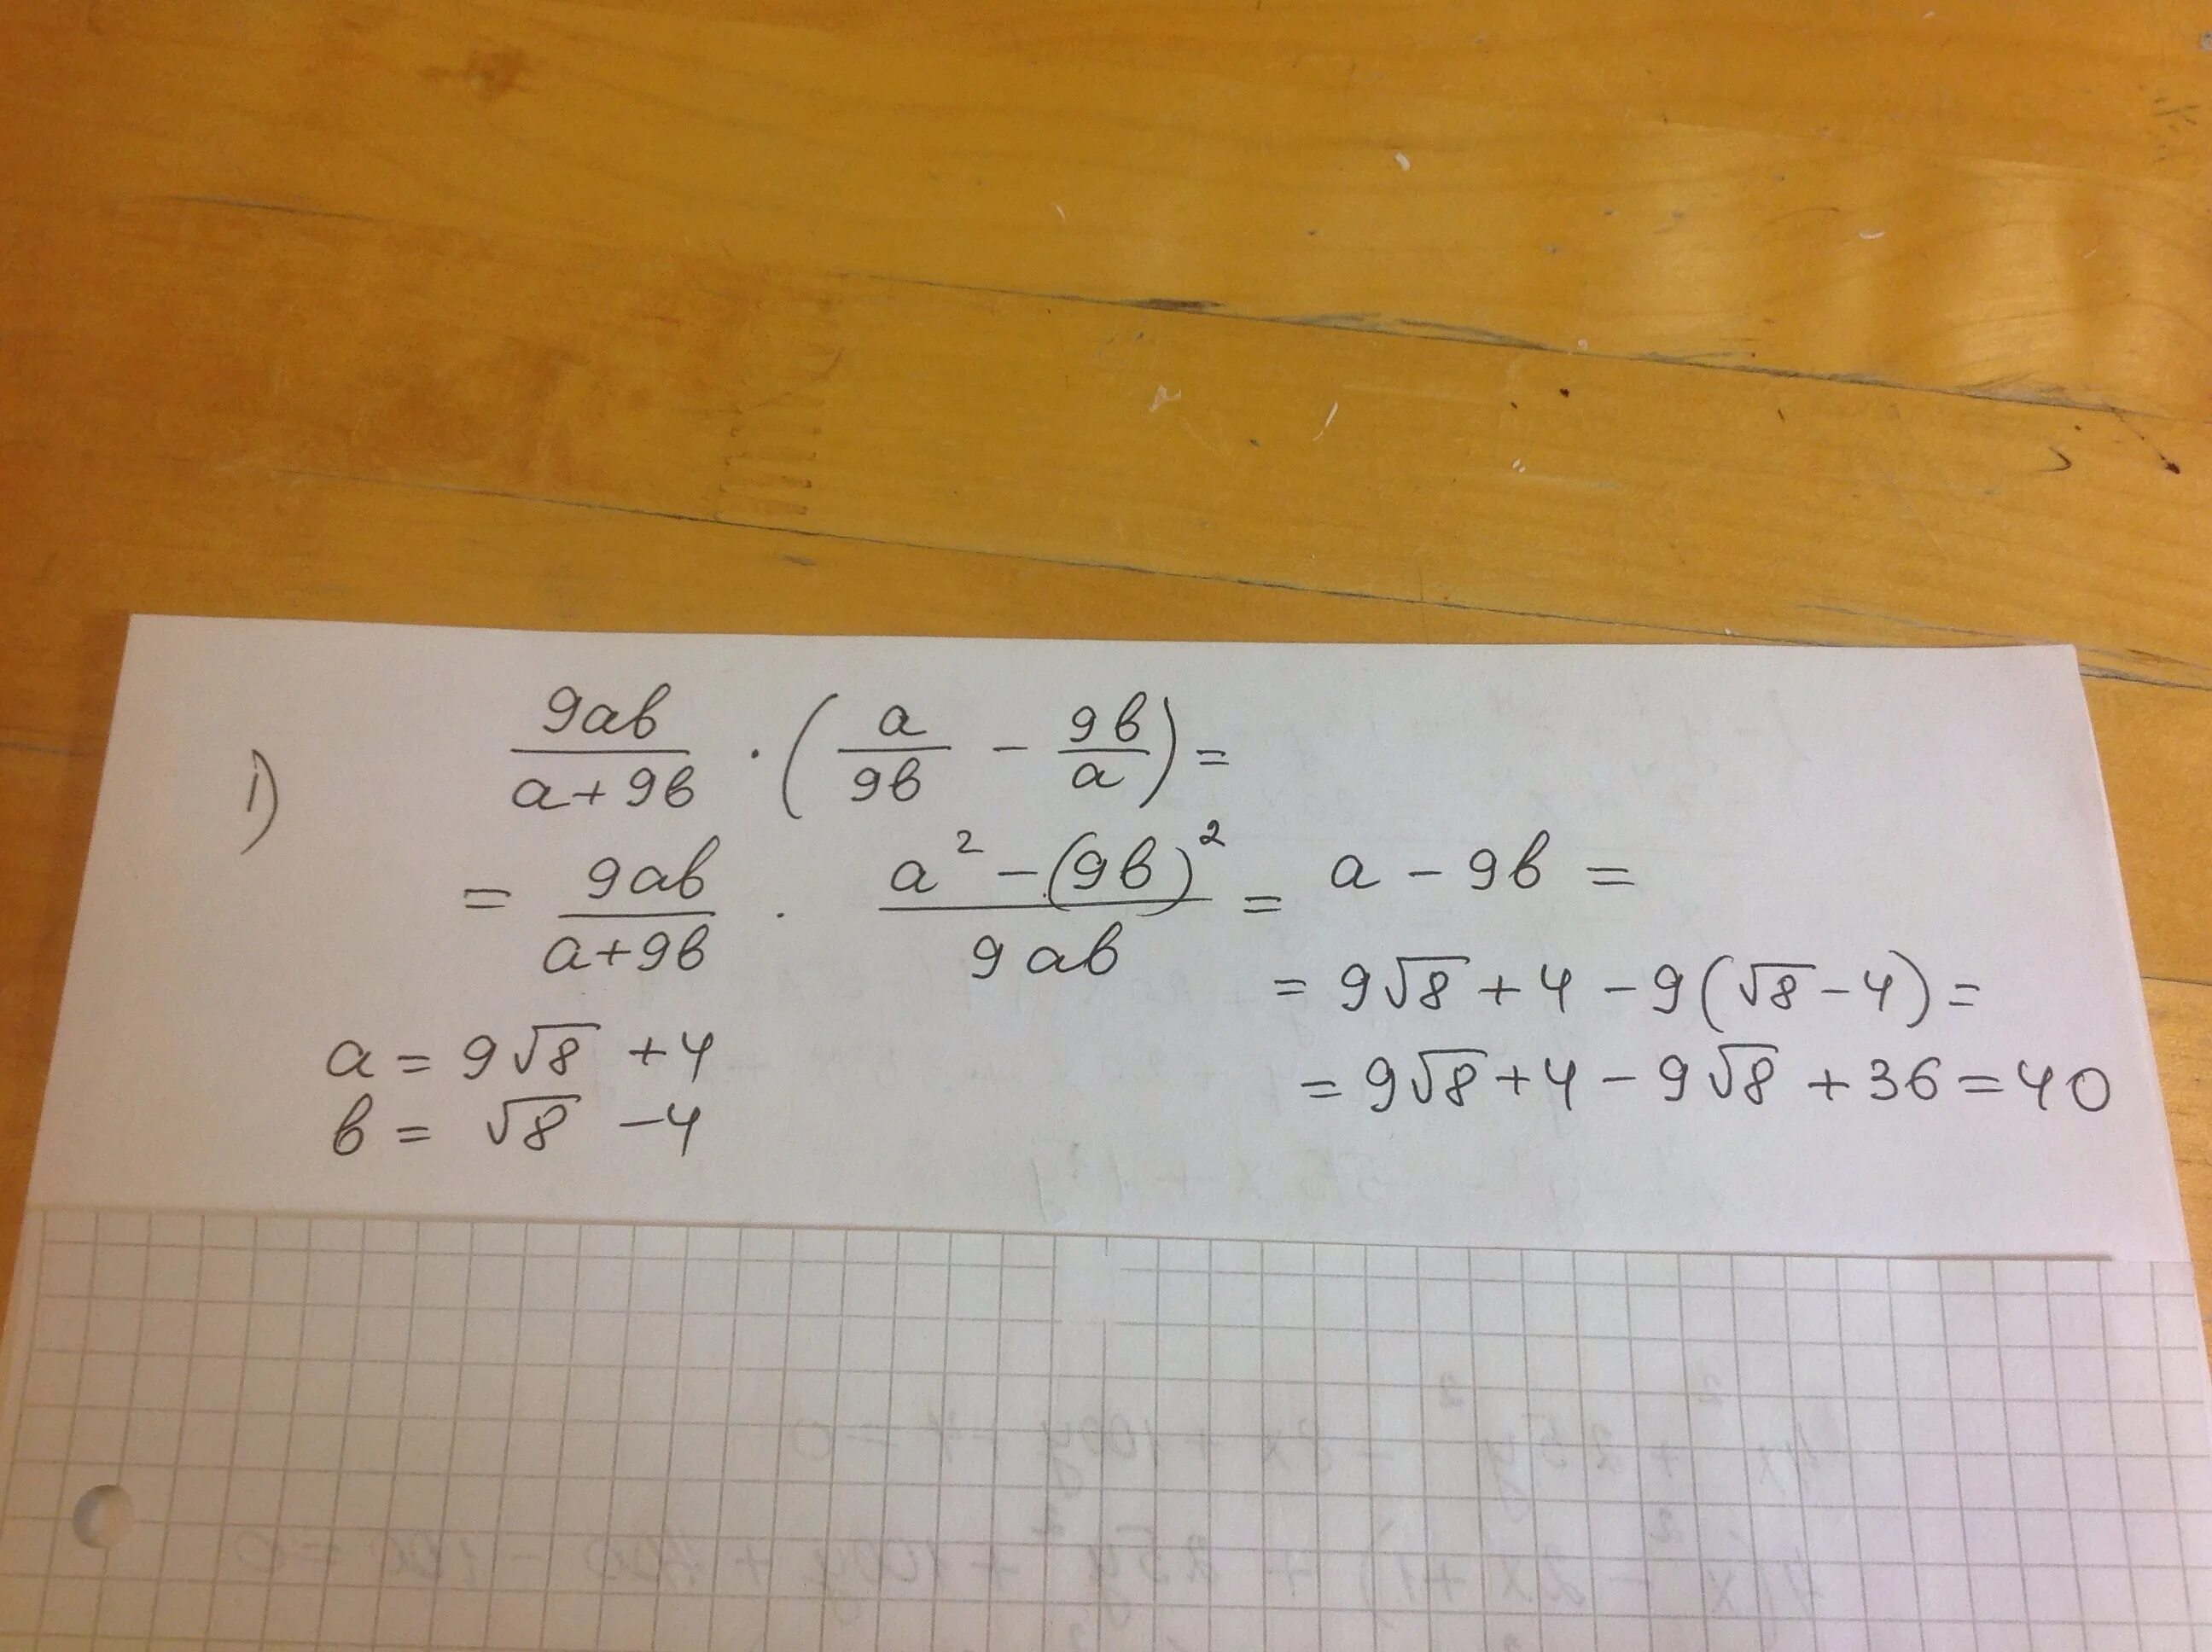 1) 9ab/(a+9b) · (a/9b − 9b/a) =
= 9ab/(a+9b) · (a² − (9b)²)/9ab = a − 9b =
= 9√8 + 4 − 9(√8 − 4) =
= 9√8 + 4 − 9√8 + 36 = 40
a = 9√8 + 4
b = √8 − 4